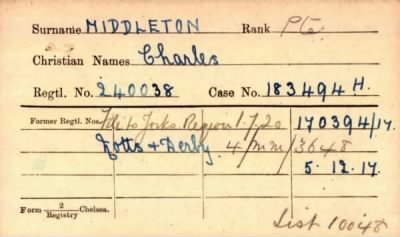 Surname MIDDLETON Rank Pte.
Christian Names Charles
Regtl. No. 240038 Case No. 183494 H.
Former Regtl. Nos. Tdi to Yorks. Region 1.7.20 170394/17.
Notts & Derby. 4/MM/3648
5.12.17.
Form 2/Registry Chelsea.
List 10048